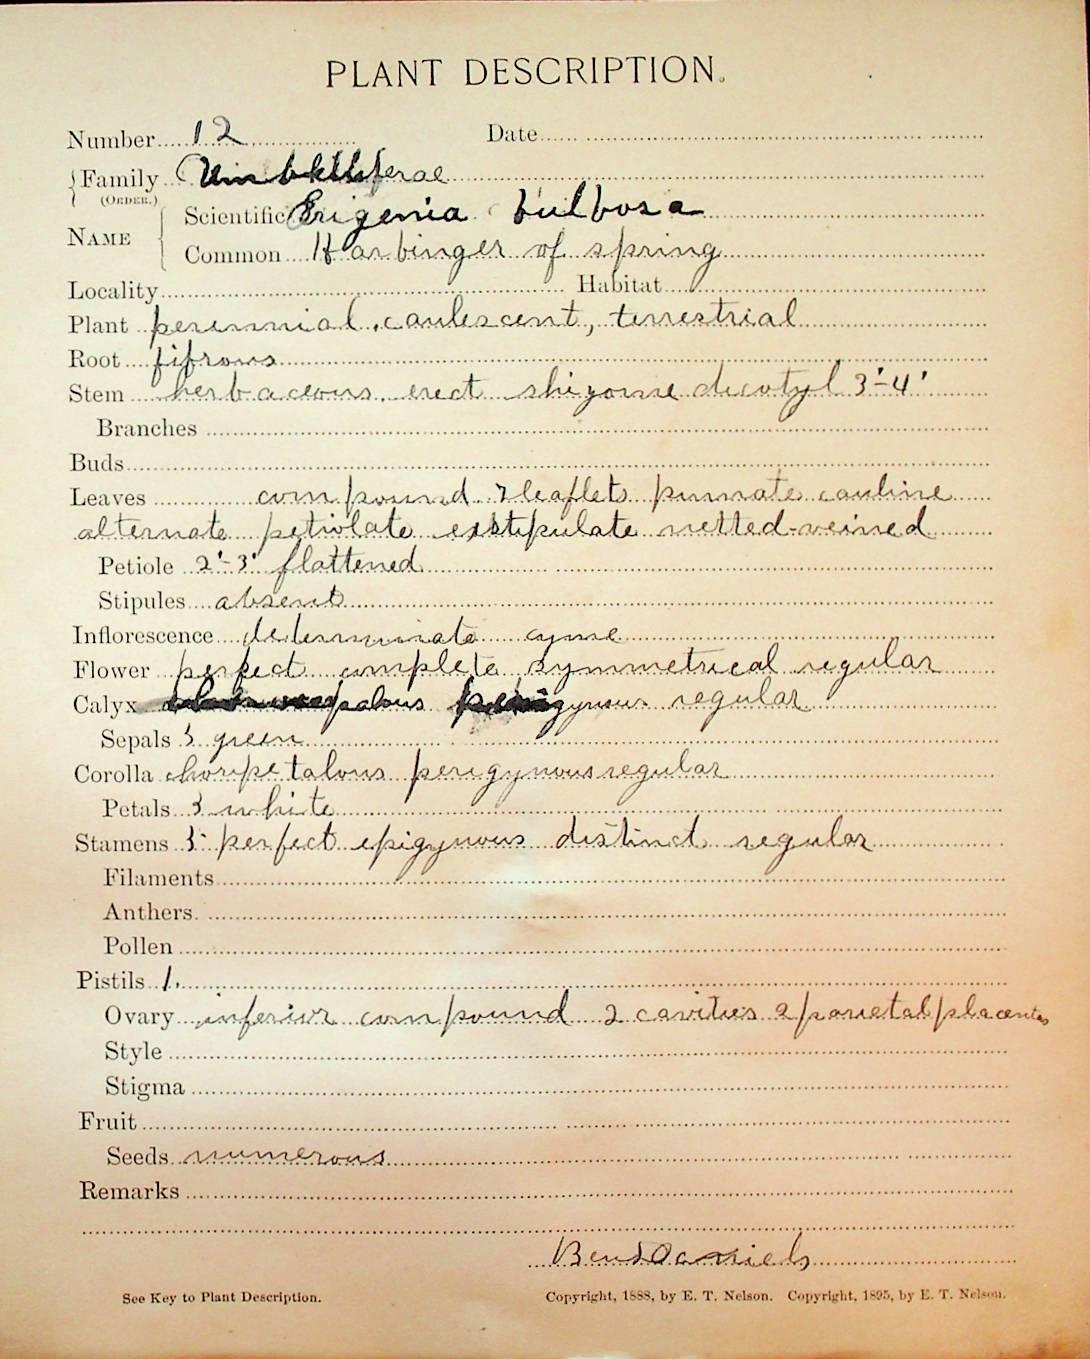 PLANT DESCRIPTION.
Number 12 Date
Family Umbelliferae
(ORDER.)
Scientific Erigenia bulbosa
NAME
Common Harbinger of spring
Locality Habitat
Plant perennial, caulescent, terrestrial
Root fifrous
Stem herbaceous, erect rhizome dicotyl 3'-4'
Branches
Buds
Leaves compound 7 leaflets pinnate cauline
alternate petiolate exstipulate netted-veined
Petiole 2'-3' flattened
Stipules absent
Inflorescence determinate cyme
Flower perfect complete symmetrical regular
Calyx regular
Sepals 5 green
Corolla choripetalous perigynous regular
Petals 5 white
Stamens 5 perfect epigynous distinct regular
Filaments
Anthers
Pollen
Pistils 1.
Ovary inferior compound 2 cavities 2 parietal placentas
Style
Stigma
Fruit
Seeds numerous
Remarks
Ben Daniels
See Key to Plant Description. Copyright, 1888, by E. T. Nelson. Copyright, 1895, by E. T. Nelson.